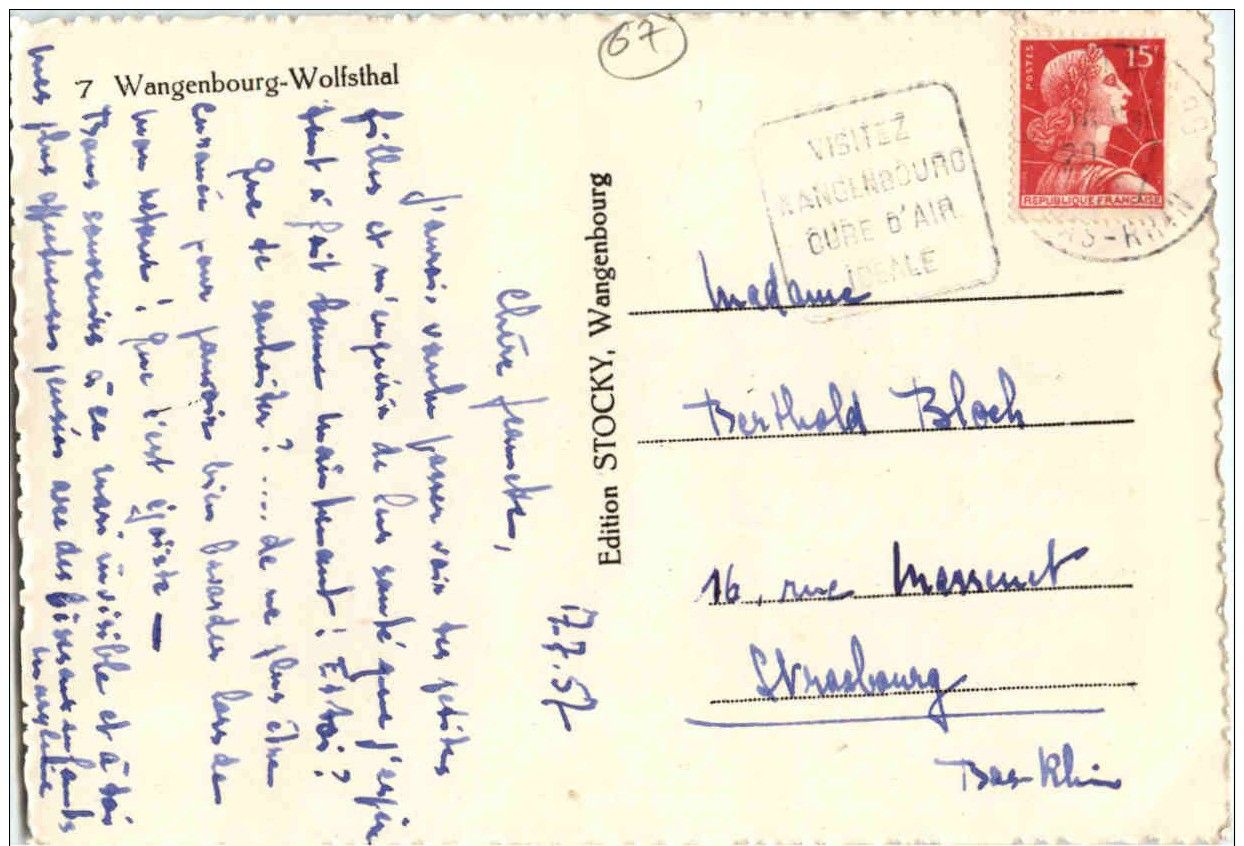 67
7 Wangenbourg-Wolfsthal
POSTES
15F
REPUBLIQUE FRANÇAISE
VISITEZ
WANGENBOURG
CURE D'AIR
IDEALE
BAS-RHIN
Edition STOCKY, Wangenbourg
17.7.57
Chère Jeannette,
J'aurais voulu passer voir tes petites
filles et m'enquérir de leur santé que j'espère
tout à fait bonne maintenant ! Et toi ?
Que te souhaiter ? .... de ne plus être
pour pouvoir bien bavarder lors de
mon retour ! Que c'est égoïste —
Bons souvenirs à ce mari invisible et à toi
mes plus affectueuses pensées avec des bises aux enfants
Madame
Berthold Bloch
16, rue Massenet
Strasbourg
Bas-Rhin